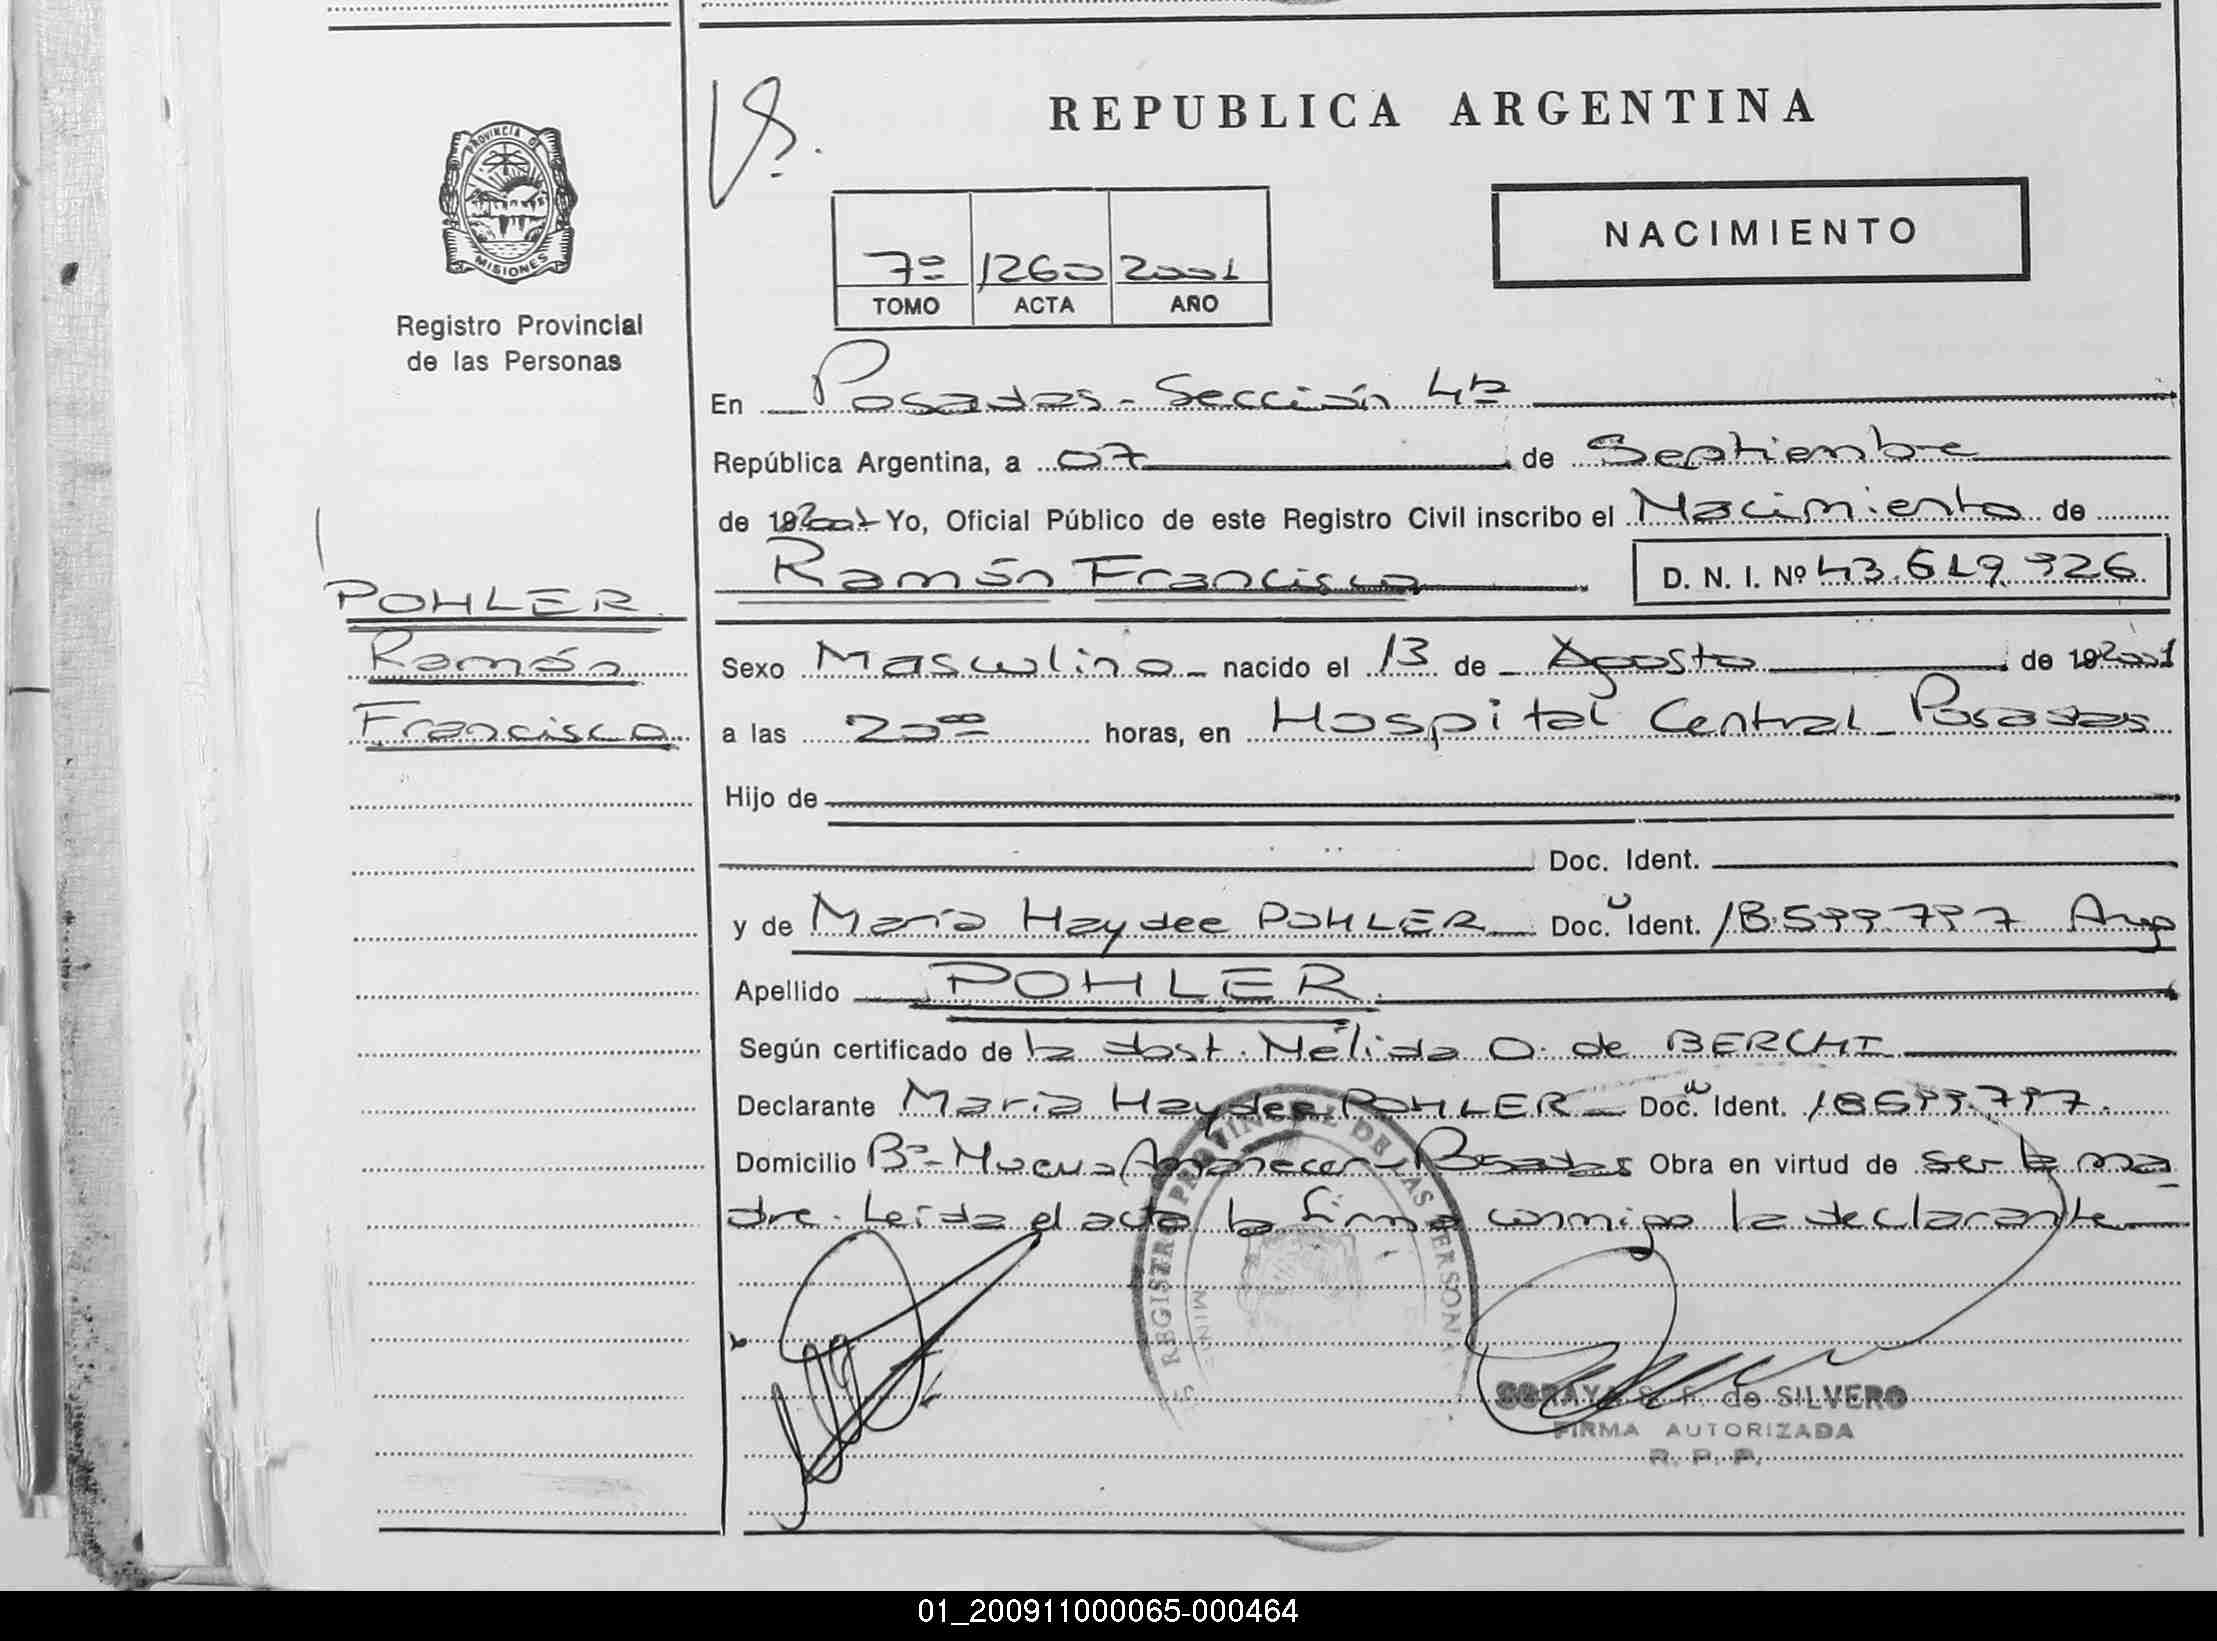 REPUBLICA ARGENTINA
PROVINCIA DE
MISIONES
Registro Provincial
de las Personas
NACIMIENTO
7º 1260 2001
TOMO ACTA AÑO
En Posadas - Sección 4ta
República Argentina, a 07 de Septiembre
de 19 2001 Yo, Oficial Público de este Registro Civil inscribo el Nacimiento de
Ramón Francisco D. N. I. Nº 43.619.926
POHLER
Ramón
Francisco
Sexo Masculino - nacido el 13 de Agosto de 19 2001
a las 20 00 horas, en Hospital Central - Posadas
Hijo de
Doc. Ident.
y de María Haydee POHLER Doc. Ident. 18.599.797 Arg
Apellido POHLER
Según certificado de la obst. Nélida O. de BERCHI
Declarante María Haydee POHLER - Doc. Ident. 18599.797.
Domicilio Bº - Nuevo Amanecer - Posadas Obra en virtud de ser la ma
dre. Leída el acta la firma conmigo la declarante
REGISTRO PROVINCIAL DE LAS PERSONAS
SORAYA S. F. de SILVERO
FIRMA AUTORIZADA
R. P. P.
01_200911000065-000464